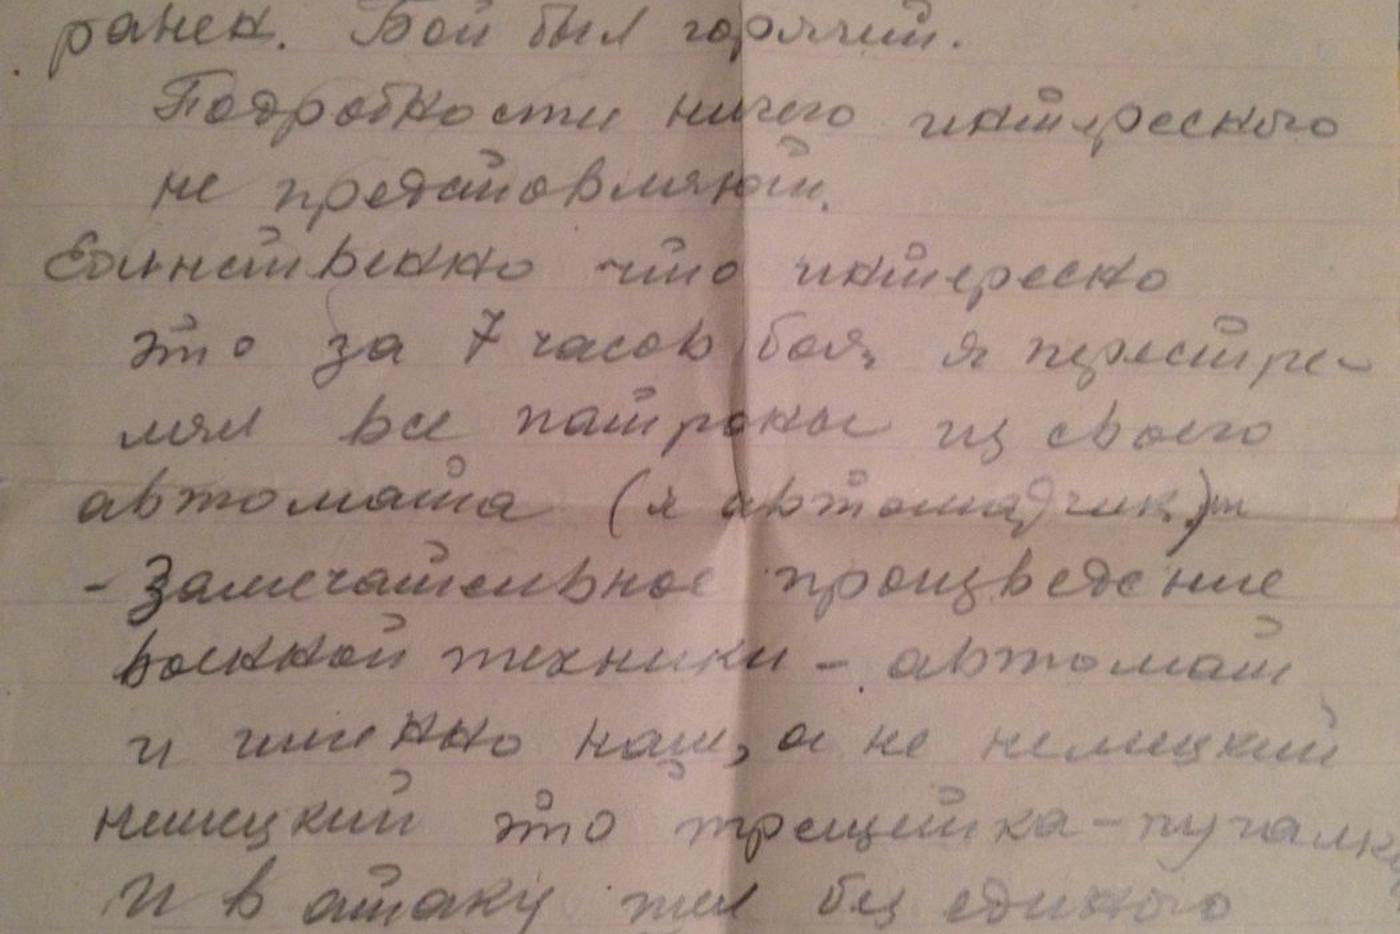 ранен. Бой был горячий.
Подробности ничего интересного
не представляют.
Единственно что интересно
это за 7 часов боя, я перестре-
лял все патроны из своего
автомата (я автоматчик)
- Замечательное произведение
военной техники - автомат
и именно наш, а не немецкий
немецкий это трещетка - пугалка
И в атаку шел без единого